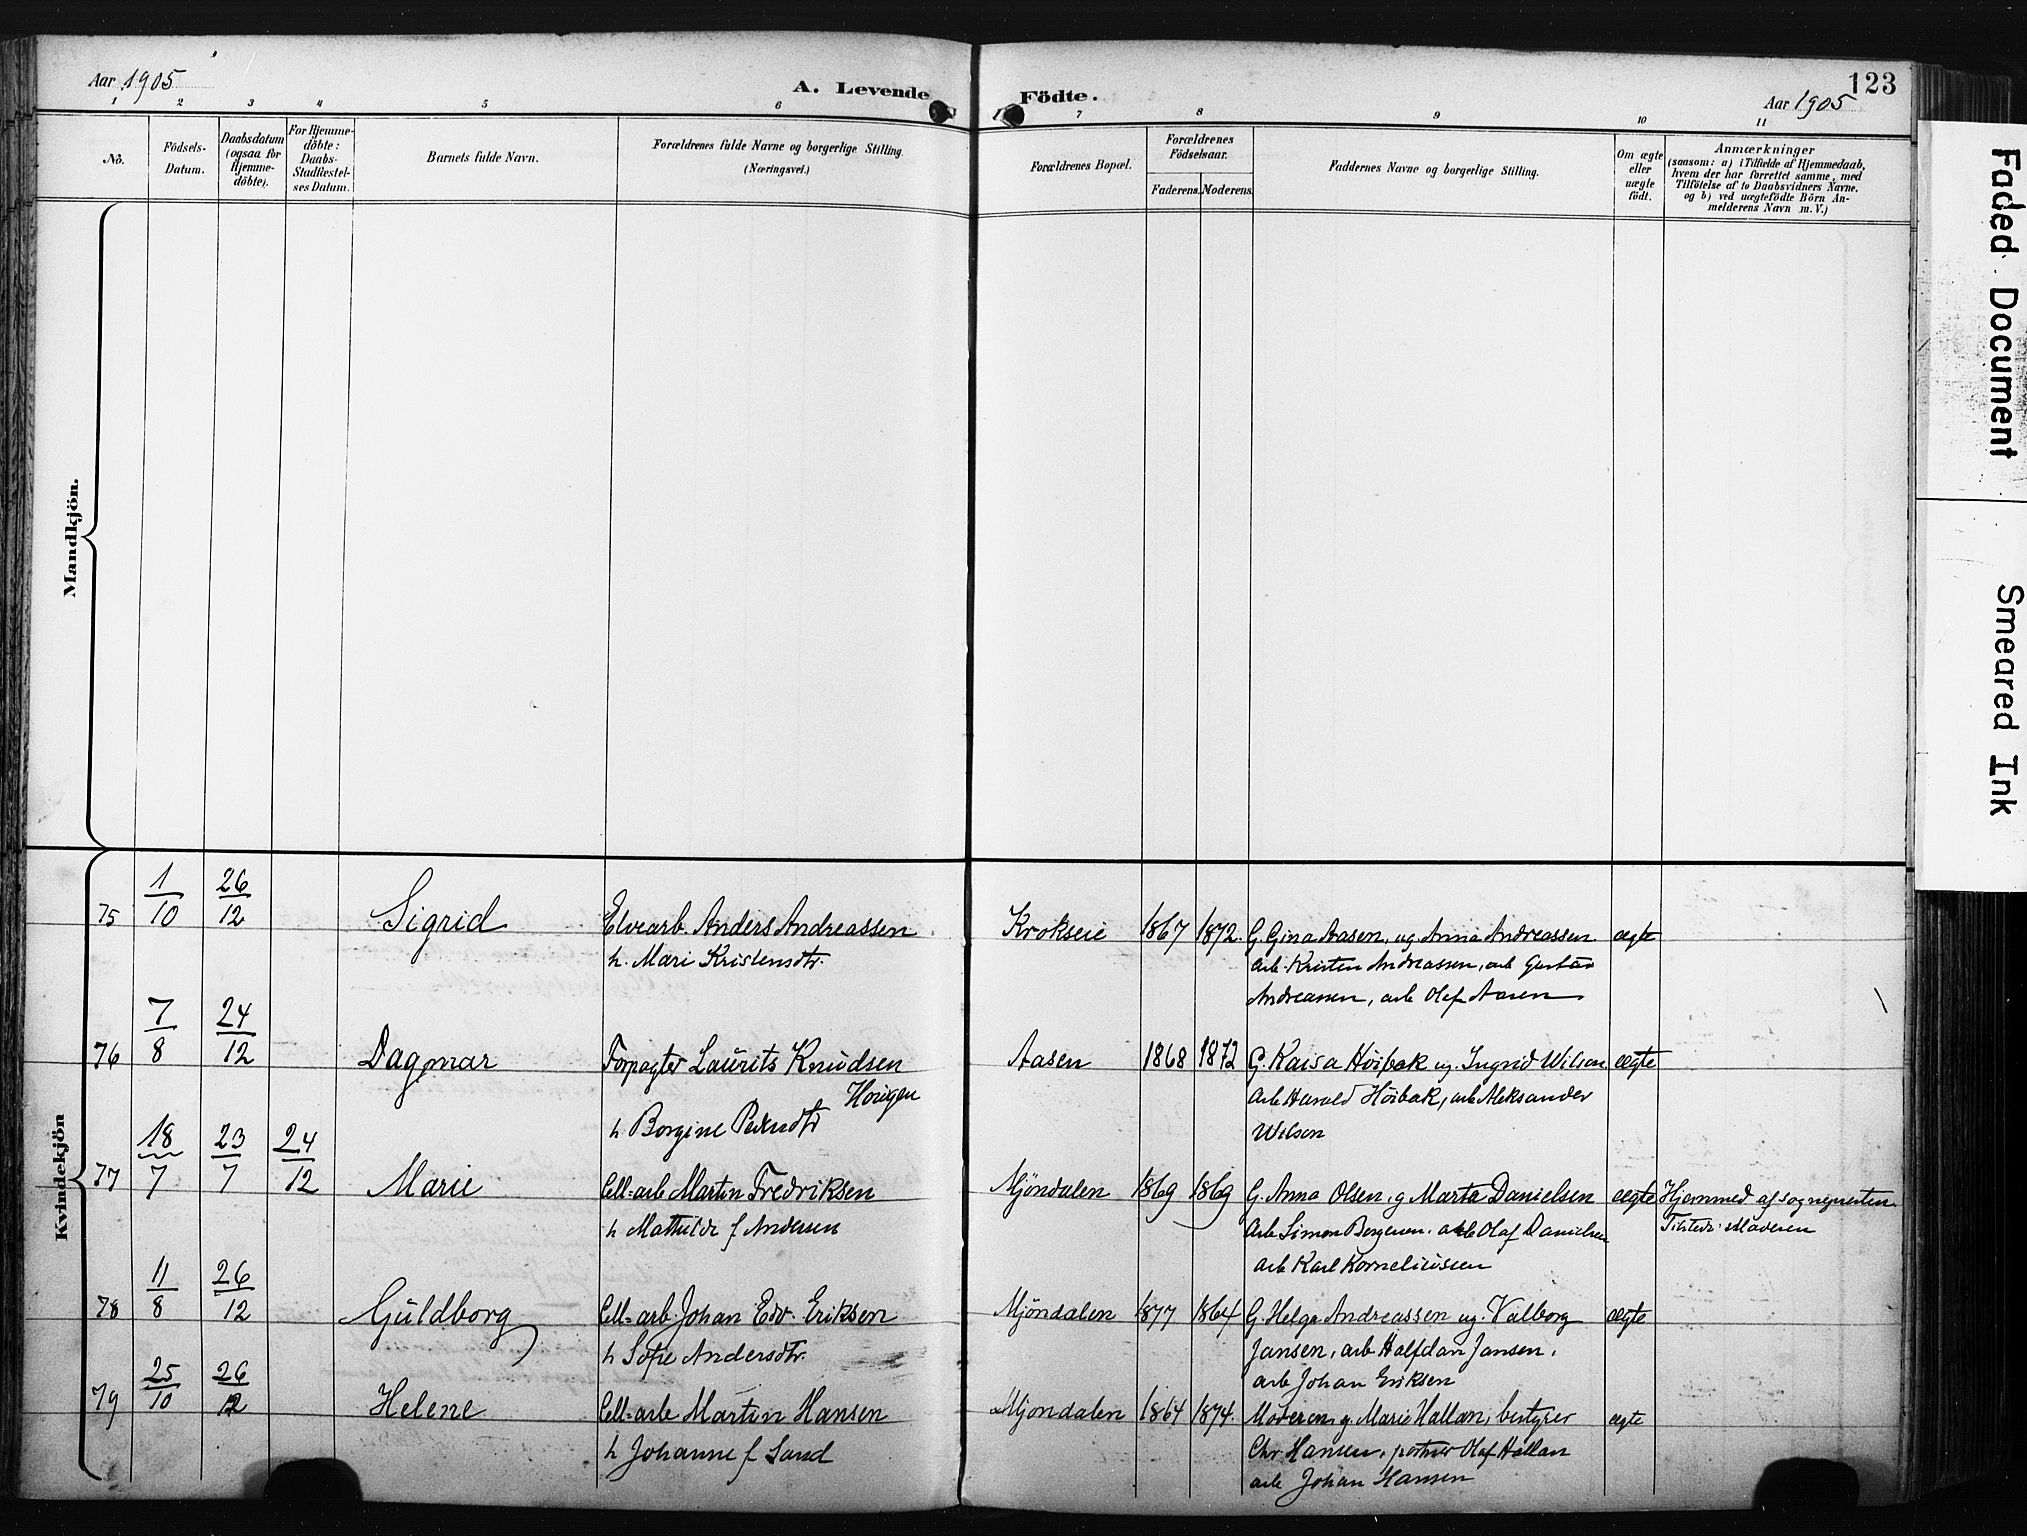 Aar 1905
A. Levende Födte.
123
Aar 1905
1 2 3 4 5 6 7 8 9 10 11
No.
Födsels-Datum.
Daabsdatum (ogsaa for Hjemme-döbte).
For Hjemme-döbte: Daabs-Stadfæstel-ses Datum.
Barnets fulde Navn.
Forældrenes fulde Navne og borgerlige Stilling. (Næringsvei.)
Forældrenes Bopæl.
Forældrenes Födselsaar.
Faderens. Moderens.
Faddernes Navne og borgerlige Stilling.
Om ægte eller uægte födt.
Anmærkninger
(saasom: a) i Tilfælde af Hjemmedaab,
hvem der har forrettet samme, med
Tilföielse af to Daabsvidners Navne.
og b) ved uægtefödte Börn An-
melderens Navn m. V.)
Mandkjön.
Kvindekjön
75 1/10 26/12 Sigrid Elvearb. Anders Andreassen Krokseie 1867 1872. G. Gina Aasen, ug Anna Andreassen ægte
h. Mari Kristensdtr. arb. Kristen Andreassen, arb Gustav
Andreassen, arb Olaf Aasen
76 7/8 24/12 Dagmar Forpagter Laurits Knudsen Aasen 1868 1872 G. Kaisa Höibak ug. Ingrid Wilson ægte
Horigen arb Harald Höibak, arb Aleksander
h Borgine Pedersdtr Wilson
77 18/7 23/7 24/12 Marie Cell=arb Martin Fredriksen Mjöndalen 1869 1869 G. Anna Olsen, g Marta Danielsen ægte Hjemmed af sognepresten
h Mathilde f Andersen arb Simon Borgersen. arb Olaf Danielsen Tilstede: Moderen
arb Karl Korneliussen
78 11/8 26/12 Guldborg Cell=arb Johan Edv. Eriksen Mjöndalen 1877 1864 G. Helga Andreassen ug. Valborg ægte
h Sofie Andersdtr. Jansen, arb Halfdan Jansen,
arb Johan Eriksen
79 25/10 26/12 Helene Cell=arb Martin Hansen Mjöndalen 1864 1874. Moderen, g. Marie Hallan, bestyrer ægte
h Johanne f Sand Chr Hansen, portner Olaf Hallan
arb Johan Hansen
Faded Document
Smeared Ink